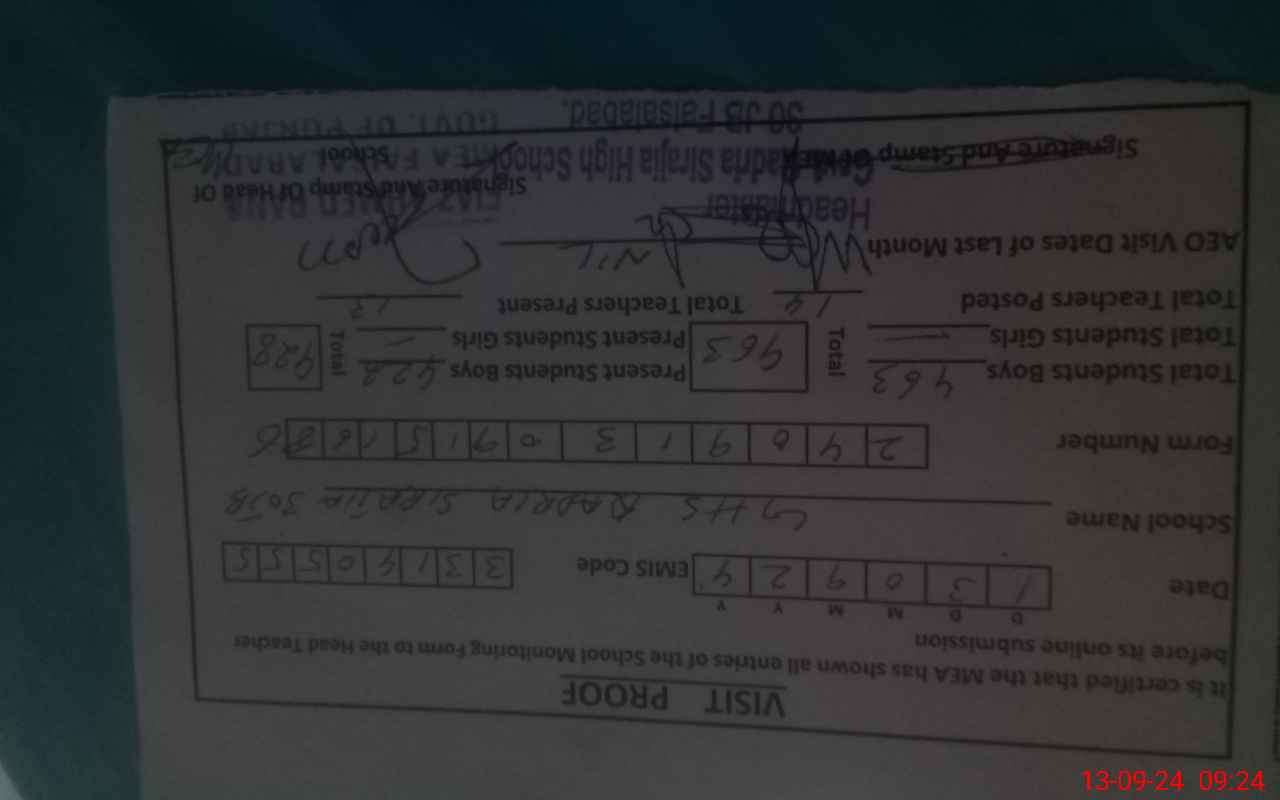 VISIT PROOF
It is certified that the MEA has shown all entries of the School Monitoring Form to the Head Teacher
before its online submission
D D M M Y Y
Date 1 3 0 9 2 4 EMIS Code 3 3 1 4 0 5 5 5
School Name GHS QADRIA SIRAJIA 30JB
Form Number 2 4 0 9 1 3 0 9 1 5 1 6 8 6
Total Students Boys 463 Total 463 Present Students Boys 428 Total 428
Total Students Girls — Present Students Girls —
Total Teachers Posted 14 Total Teachers Present 13
AEO Visit Dates of Last Month NIL
Headmaster
Signature And Stamp Of Head Of School
Govt. Qadria Sirajia High School
30 JB Faisalabad.
Signature And Stamp Of MEA
GOVT. OF PUNJAB
13-09-24 09:24